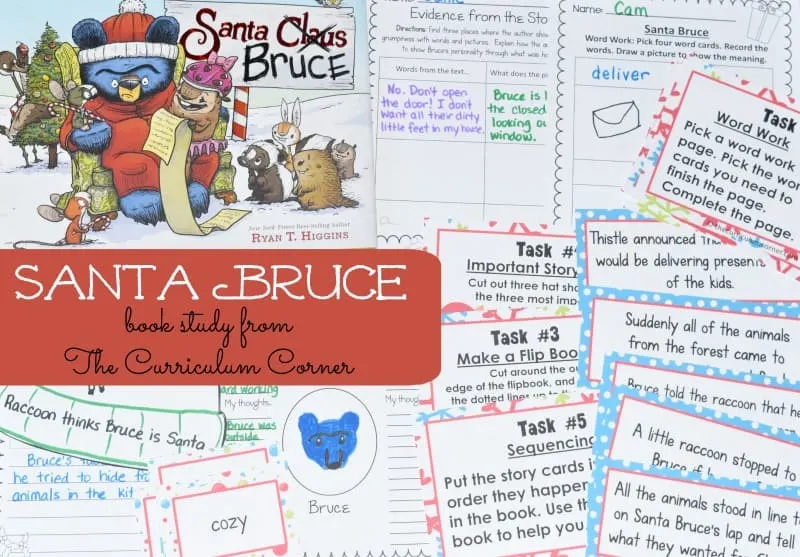 Santa Claus
BRUCE
New York Times Best-Selling author
RYAN T. HIGGINS
SANTA BRUCE
book study from
The Curriculum Corner
Evidence from the Sto
Directions: Find three places where the author sho
grumpiness with words and pictures. Explain how the a
to show Bruce's personality through what was
Words from the text...
What does the pi
No. Don't open
the door! I don't
want all their dirty
little feet in my house.
Bruce is
the closed
looking ou
window.
Name: Cam
Santa Bruce
Word Work: Pick four word cards. Record the
words. Draw a picture to show the meaning.
deliver
Task
Word Work
Pick a word work
page. Pick the wor
cards you need to
finish the page.
Complete the page.
Task #
Important Story
Cut out three hat sh
the three most imp
Task #3
Make a Flip Boo
Cut around the ou
edge of the flipbook, and
the dotted lines up to the
Task #5
Sequencing
Put the story cards i
order they happene
in the book. Use th
book to help you.
Thistle announced
would be delivering presen
of the kids.
Suddenly all of the animals
from the forest came to
Bruce told the raccoon that he
A little raccoon stopped to
Bruce if
All the animals stood in line t
on Santa Bruce's lap and tell
what they wanted for
Raccoon thinks Bruce is Santa
Bruce's
he tried to hide fro
animals in the kit
and working
My thoughts...
Bruce was
outside
Bruce
My thou
cozy